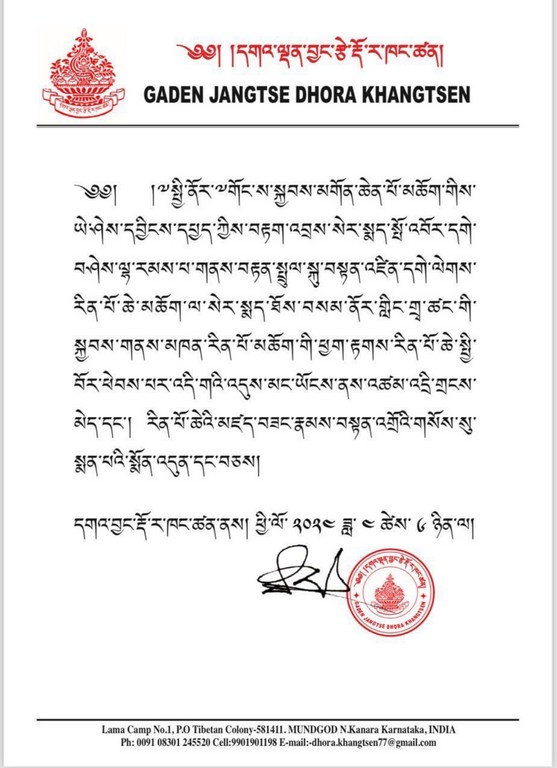 ༄༅། །དགའ་ལྡན་བྱང་རྩེ་རྡོ་ར་ཁང་ཚན།
GADEN JANGTSE DHORA KHANGTSEN
༄༅། །༧སྤྱི་ནོར་༧གོང་ས་སྐྱབས་མགོན་ཆེན་པོ་མཆོག་གིས་
ཡེ་ཤེས་དབྱིངས་དཔྱད་ཀྱིས་བརྟག་འབྲས་སེར་སྨད་སྤོ་འབོར་དགེ་
བཤེས་ལྷ་རམས་པ་གནས་བརྟན་སྤྲུལ་སྐུ་བསྟན་འཛིན་དགེ་ལེགས་
རིན་པོ་ཆེ་མཆོག་ལ་སེར་སྨད་ཐོས་བསམ་ནོར་གླིང་གྲྭ་ཚང་གི་
སྐྱབས་གནས་མཁན་རིན་པོ་མཆོག་གི་ཕྱག་རྟགས་རིན་པོ་ཆེ་སྤྱི་
བོར་ཕེབས་པར་འདི་གའི་འདུས་མང་ཡོངས་ནས་འཚམ་འདྲི་གྲངས་
མེད་དང་། རིན་པོ་ཆེའི་མཛད་བཟང་རྣམས་བསྟན་འགྲོའི་གསོས་སུ་
སྨན་པའི་སྨོན་འདུན་དང་བཅས།
དགའ་བྱང་རྡོ་ར་ཁང་ཚན་ནས། ཕྱི་ལོ་ ༢༠༢༤ ཟླ་ ༤ ཚེས་ ༦ ཉིན་ལ།
༄༅། །དགའ་ལྡན་བྱང་རྩེ་རྡོ་ར་ཁང་ཚན།
GADEN JANGTSE DHORA KHANGTSEN
Lama Camp No.1, P.O Tibetan Colony-581411. MUNDGOD N.Kanara Karnataka, INDIA
Ph: 0091 08301 245520 Cell:9901901198 E-mail:-dhora.khangtsen77@gmail.com